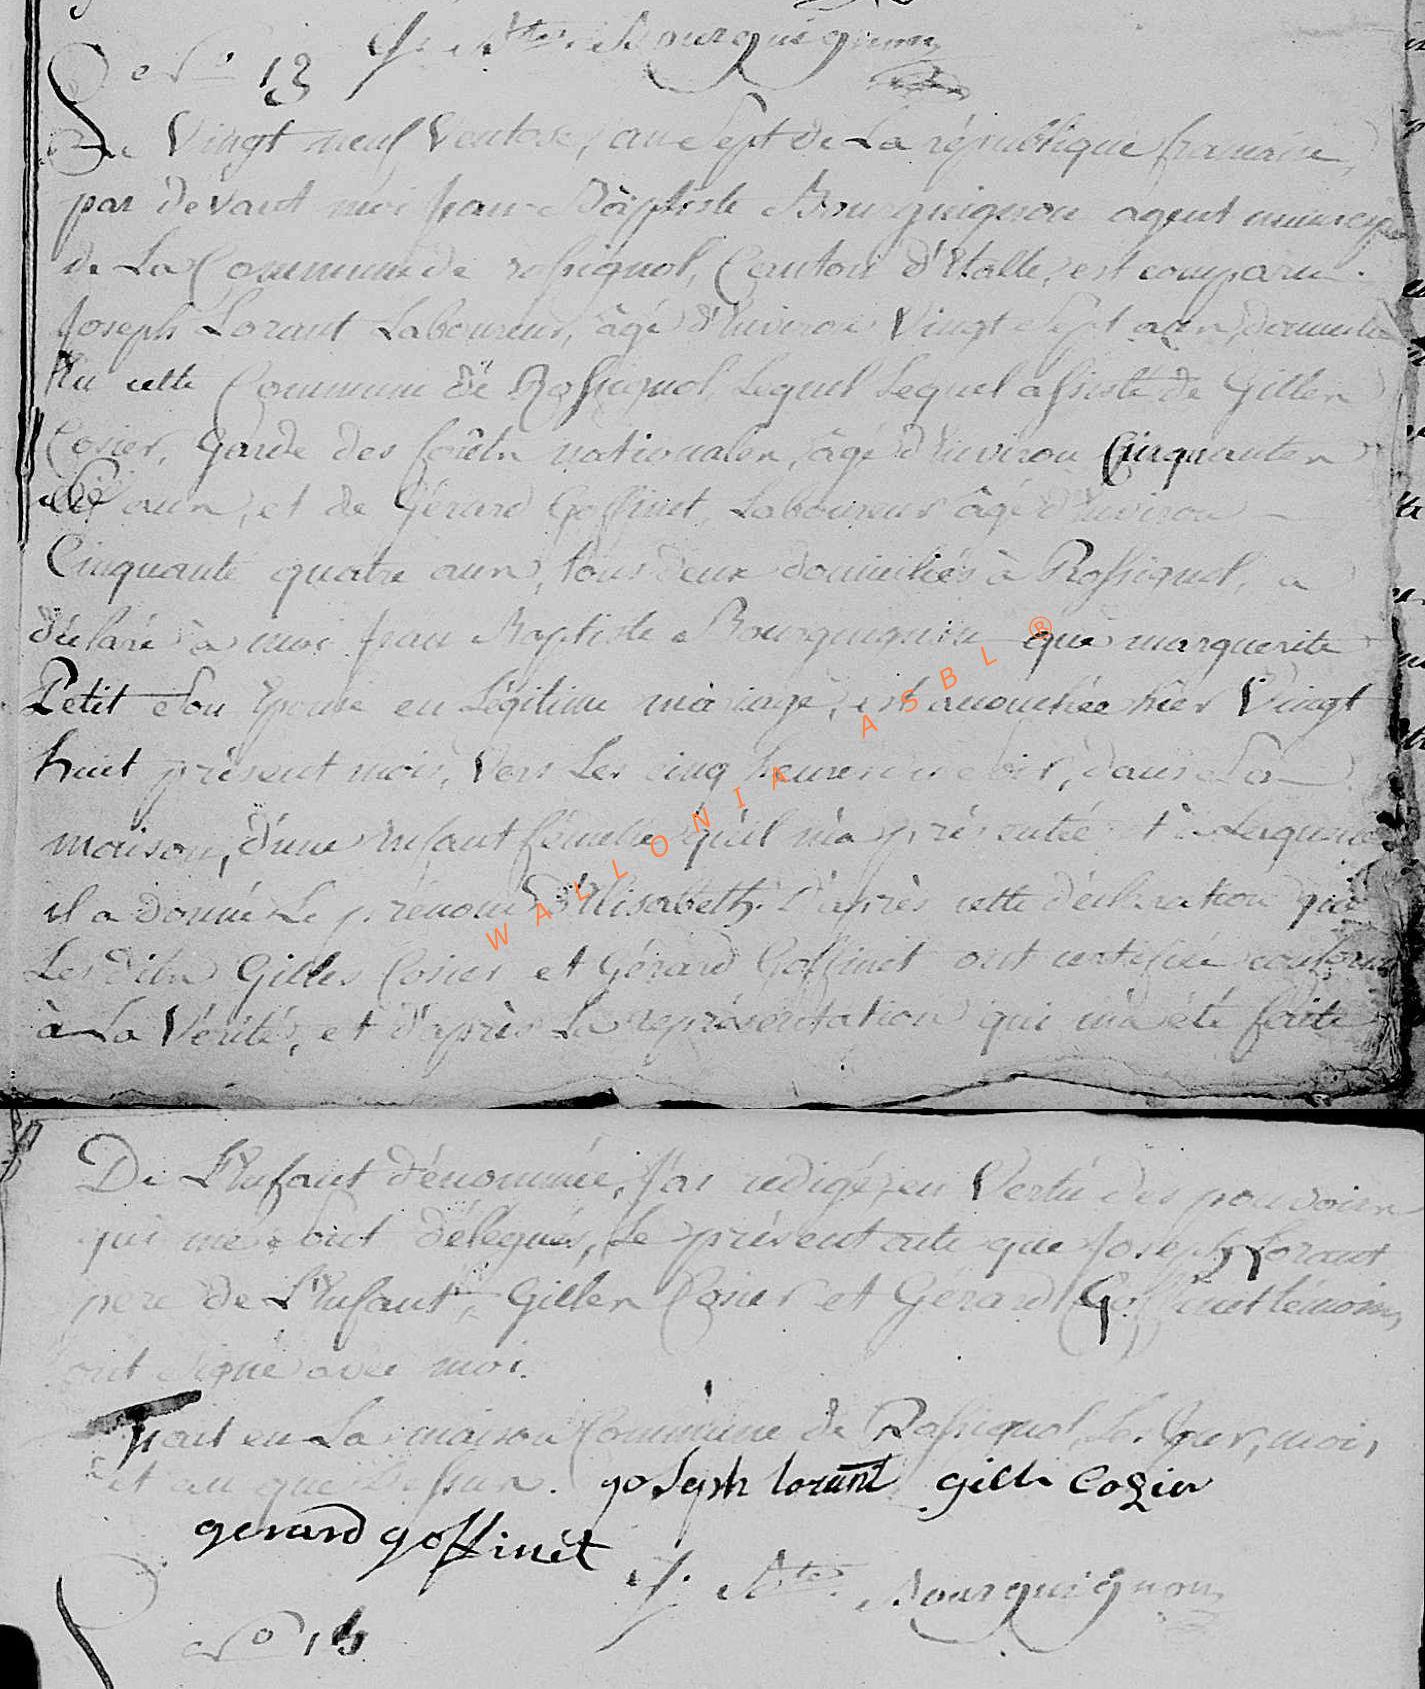 J. Bte. Bourguignon
No. 13
Le Vingt neuf Ventose, an sept de La république francaise,
par devant moi jean Baptiste Bourguignon agent municip
de La Commune de rossignol, Canton d'Etalle, est comparu
Joseph Lorant Laboureur, âgé d'Environ Vingt Sept ans, domicilié
cette Commune de Rossignol, Lequel Lequel assisté de Gilles
Cosier, Garde des forêts nationales, âgé d'Environ Cinquante
ans, et de Gérard Goffinet Laboureur âgé d'Environ
Cinquante quatre ans, tous deux domiciliés à Rossignol, a
déclaré à moi Jean Baptiste Bourguignon que marguerite
Petit Son Epouse en Légitime mariage, est accouchée hier Vingt
huit présent mois, Vers Les cinq heures du soir, dans Sa
maison, d'une Enfant fémelle qu'il m'a présentée et a Laquelle
il a donné Le prénom d'Elisabeth. D'après cette déclaration que
Les dits Gilles Cosier et Gérard Goffinet ont certifiée conforme
à La Vérité, et d'après La représentation qui m'a été faite
De L'Enfant dénommée, J'ai redigé, en Vertu des pouvoirs
qui me Sont délégués, Le présent acte que Joseph Lorant
pere de L'Enfant, Gilles Cosier et Gérard Goffinet témoins,
ont Signé avec moi.
Fait en La maison Commune de Rossignol, Les jour, mois,
et an que dessus. joseph lorant gille Cozier
gerard goffinet
J. Bte. Bourguignon
No
WALLONIA ASBL ®